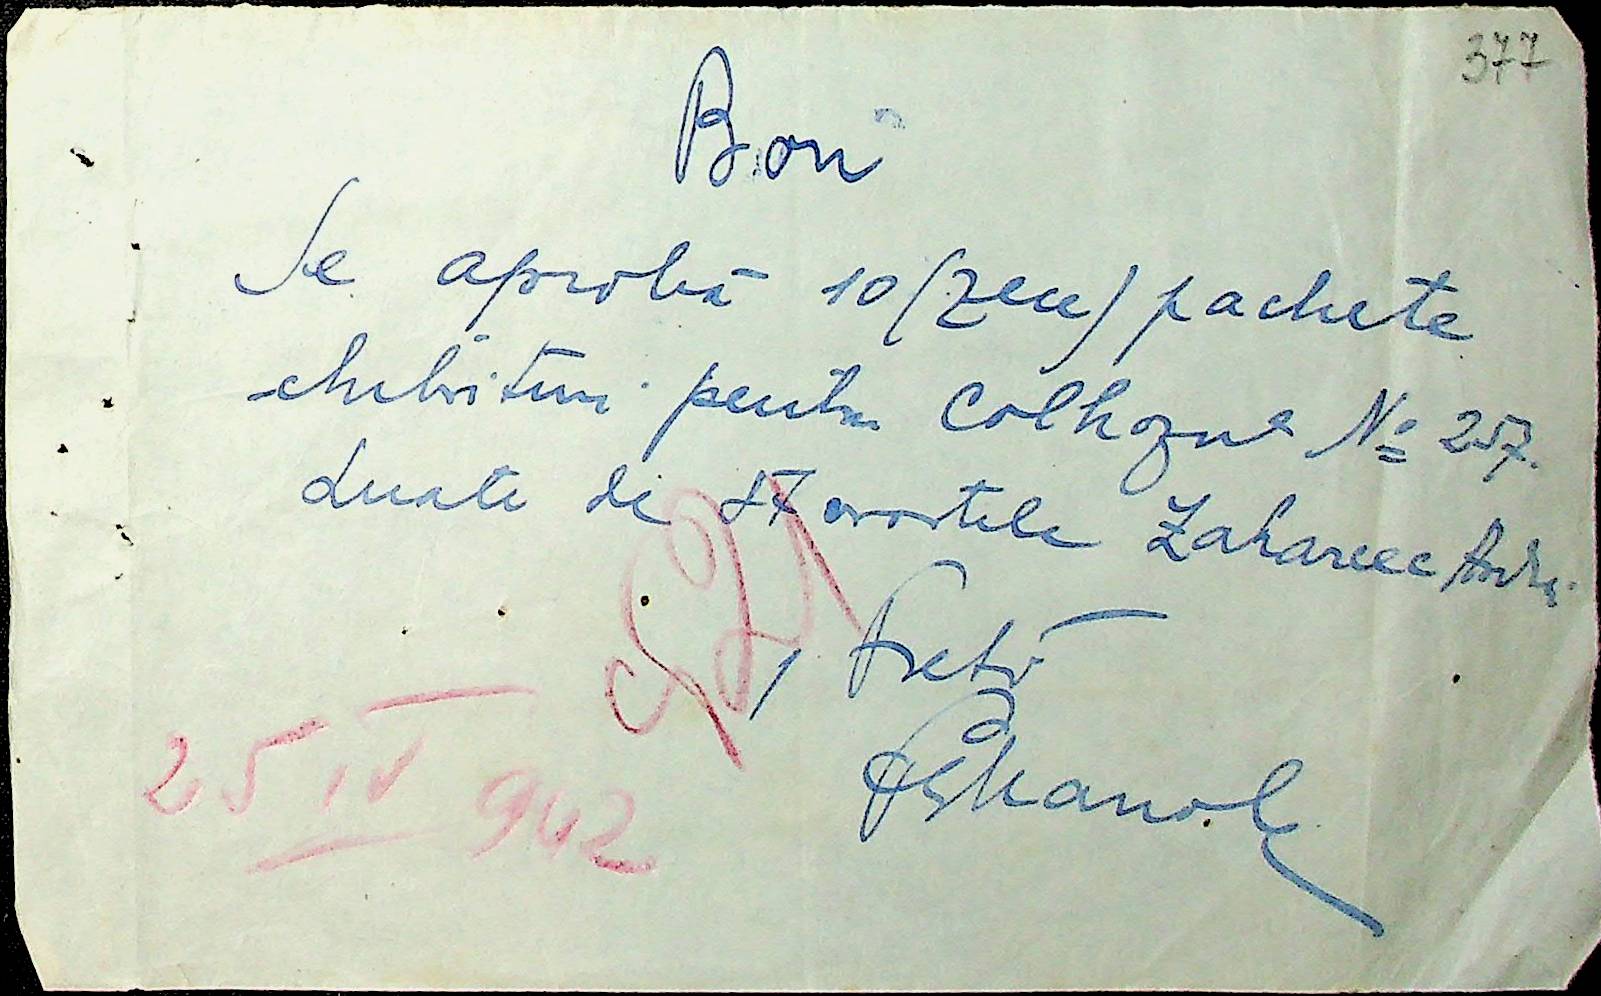 377
Bon
Se aprobă 10 (zece) pachete
chibrituri pentru Colhozul № 257.
Luate de Starostele Zaharcec
Pretor
25 IV 942